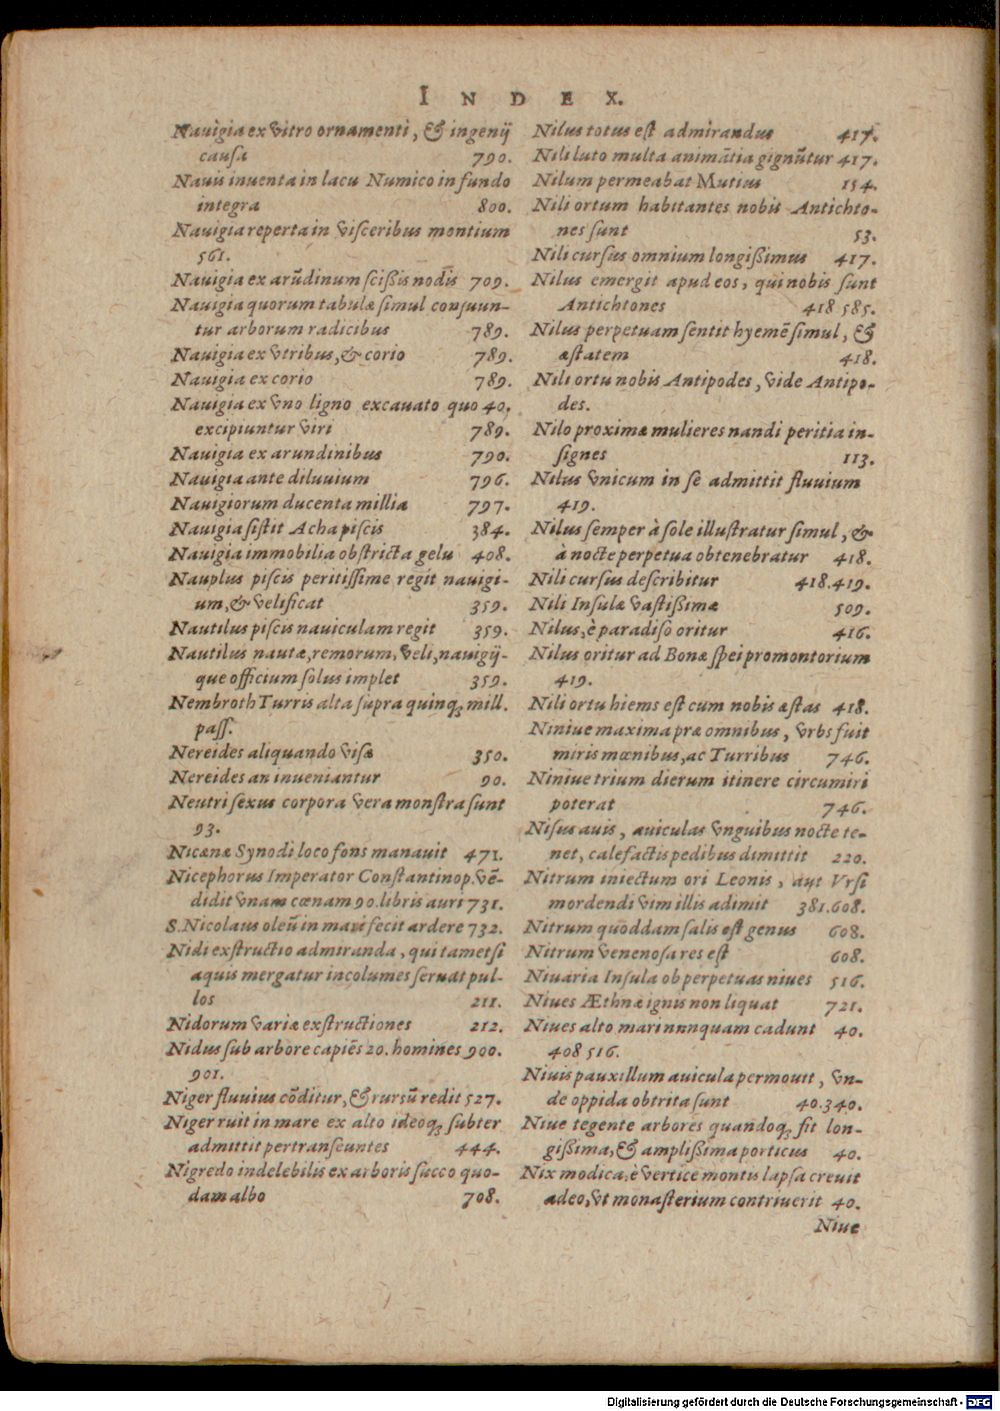 INDEX.
Nauigia ex vitro ornamenti, & ingenij
causa 790.
Nauis inuenta in lacu Numico in fundo
integra 800.
Nauigia reperta in visceribus montium
561.
Nauigia ex arũdinum scißis nodis 709.
Nauigia quorum tabulæ simul consuun-
tur arborum radicibus 789.
Nauigia ex vtribus, & corio 789.
Nauigia ex corio 789.
Nauigia ex vno ligno excauato quo 40,
excipiuntur viri 789.
Nauigia ex arundinibus 790.
Nauigia ante diluuium 796.
Nauigiorum ducenta millia 797.
Nauigia sistit Acha piscis 384.
Nauigia immobilia obstricta gelu 408.
Nauplus piscis peritissime regit nauigi-
um, & velificat 359.
Nautilus piscis nauiculam regit 359.
Nautilus nautæ, remorum, veli, nauigij-
que officium solus implet 359.
Nembroth Turris alta supra quinq; mill.
pass.
Nereides aliquando visæ 350.
Nereides an inueniantur 90.
Neutri sexus corpora vera monstra sunt
93.
Nicænæ Synodi loco fons manauit 471.
Nicephorus Imperator Constantinop. vẽ-
didit vnam cœnam 90. libris auri 731.
S. Nicolaus oleũ in mari fecit ardere 732.
Nidi exstructio admiranda, qui tametsi
aquis mergatur incolumes seruat pul-
los 211.
Nidorum variæ exstructiones 212.
Nidus sub arbore capiẽs 20. homines 900.
901.
Niger fluuius cõditur, & rursũ redit 527.
Niger ruit in mare ex alto ideoq; subter
admittit pertranseuntes 444.
Nigredo indelebilis ex arboris succo quo-
dam albo 708.
Nilus totus est admirandus 417.
Nili luto multa animãtia gignũtur 417.
Nilum permeabat Mutius 154.
Nili ortum habitantes nobis Antichto-
nes sunt 53.
Nili cursus omnium longißimus 417.
Nilus emergit apud eos, qui nobis sunt
Antichtones 418 585.
Nilus perpetuam sentit hyemẽ simul, &
æstatem 418.
Nili ortu nobis Antipodes, vide Antipo-
des.
Nilo proximæ mulieres nandi peritia in-
signes 113.
Nilus vnicum in se admittit fluuium
419.
Nilus semper à sole illustratur simul, &
à nocte perpetua obtenebratur 418.
Nili cursus describitur 418.419.
Nili Insulæ vastißimæ 509.
Nilus, è paradiso oritur 416.
Nilus oritur ad Bonæ spei promontorium
419.
Nili ortu hiems est cum nobis æstas 418.
Niniue maxima præ omnibus, vrbs fuit
miris mœnibus, ac Turribus 746.
Niniue trium dierum itinere circumiri
poterat 746.
Nisus auis, auiculas vnguibus nocte te-
net, calefactis pedibus dimittit 220.
Nitrum iniectum ori Leonis, aut Vrsi
mordendi vim illis adimit 381.608.
Nitrum quoddam salis est genus 608.
Nitrum venenosa res est 608.
Niuaria Insula ob perpetuas niues 516.
Niues Æthnæ ignis non liquat 721.
Niues alto mari nnnquam cadunt 40.
408 516.
Niuis pauxillum auicula permouit, vn-
de oppida obtrita sunt 40.340.
Niue tegente arbores quandoq; fit lon-
gißima, & amplißima porticus 40.
Nix modica, è vertice montis lapsa creuit
adeo, vt monasterium contriuerit 40.
Niue
Digitalisierung gefördert durch die Deutsche Forschungsgemeinschaft - DFG